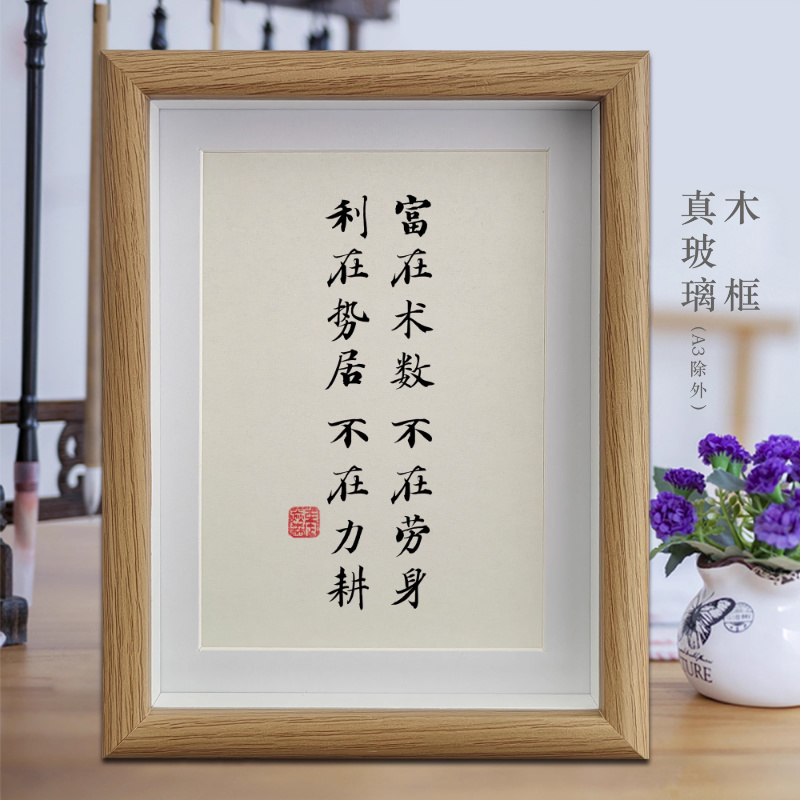 富在术数 不在劳身
利在势居 不在力耕
木框
真玻璃(A3除外)
TURE